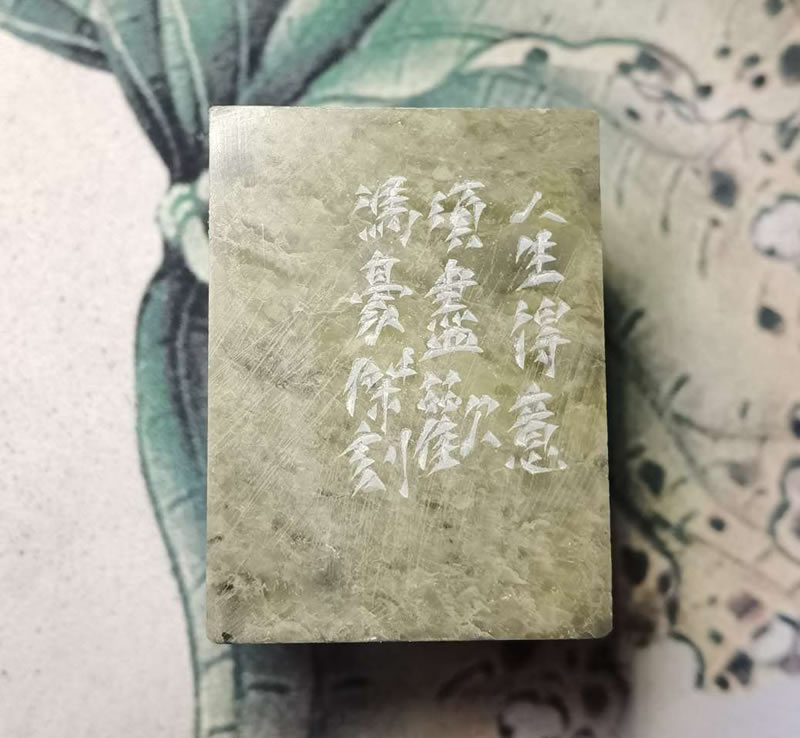 人生得意
須盡歡
馮豪傑刻